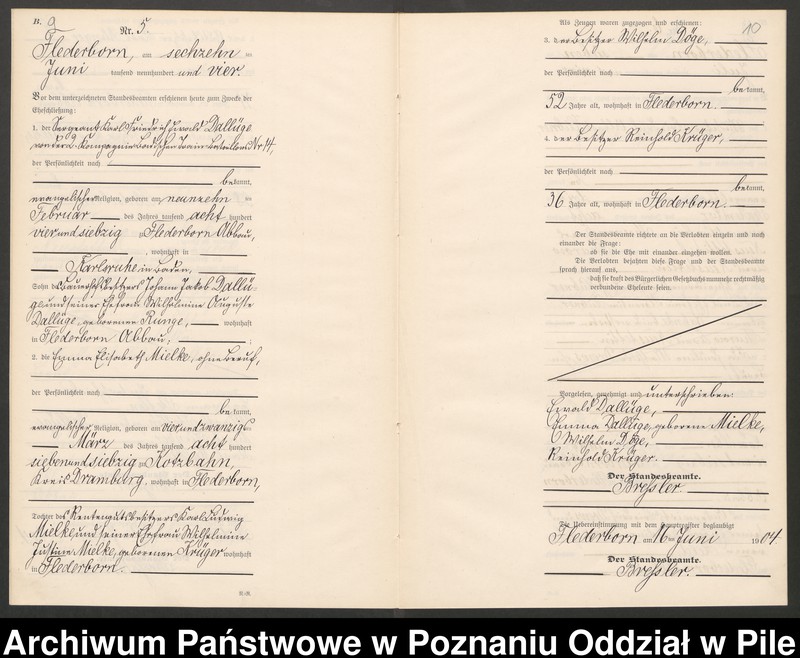 B.
9
Nr. 5.
Flederborn, am sechzehnten
Juni tausend neunhundert und vier.
Vor dem unterzeichneten Standesbeamten erschienen heute zum Zwecke der
Eheschließung:
1. der Sergeant Karl Friedrich Ewald Dallüge
von der 2. Kompagnie Badischen Train Bataillons Nr 14,
der Persönlichkeit nach
bekannt,
evangelischer Religion, geboren am neunzehnten
Februar des Jahres tausend acht hundert
vierundsiebzig Flederborn Abbau,
, wohnhaft in
Karlsruhe in Baden,
Sohn des Besitzers Johann Jakob Dallü-
ge und seiner Ehefrau Wilhelmine Auguste
Dallüge, geborenen Runge, wohnhaft
in Flederborn Abbau,
2. die Emma Elisabeth Mielke, ohne Beruf,
der Persönlichkeit nach
bekannt,
evangelischer Religion, geboren am vierundzwanzigsten
März des Jahres tausend acht hundert
siebenundsiebzig in Klotzbahn,
Kreis Dramburg, wohnhaft in Flederborn,
Tochter des Rentengutsbesitzers Karl Ludwig
Mielke und seiner Ehefrau Wilhelmine
Justine Mielke, geborenen Krüger wohnhaft
in Flederborn.
10
Als Zeugen waren zugezogen und erschienen:
3. der Besitzer Wilhelm Döge,
der Persönlichkeit nach
bekannt,
52 Jahre alt, wohnhaft in Flederborn.
4. der Besitzer Reinhold Krüger,
der Persönlichkeit nach
bekannt,
36 Jahre alt, wohnhaft in Flederborn.
Der Standesbeamte richtete an die Verlobten einzeln und nach
einander die Frage:
ob sie die Ehe mit einander eingehen wollen.
Die Verlobten bejahten diese Frage und der Standesbeamte
sprach hierauf aus,
daß sie kraft des Bürgerlichen Gesetzbuchs nunmehr rechtmäßig
verbundene Eheleute seien.
Vorgelesen, genehmigt und unterschrieben:
Ewald Dallüge,
Emma Dallüge, geborene Mielke,
Wilhelm Döge,
Reinhold Krüger.
Der Standesbeamte.
Bressler.
Die Uebereinstimmung mit dem Hauptregister beglaubigt
Flederborn am 16ten Juni 1904.
Der Standesbeamte.
Bressler.
Archiwum Państwowe w Poznaniu Oddział w Pile